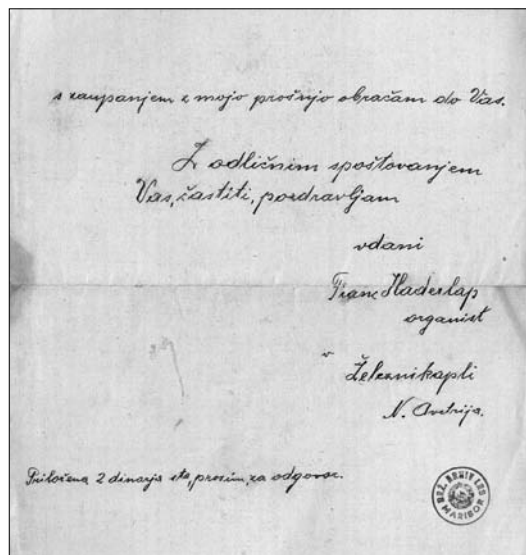 s zaupanjem z mojo prošnjo obračam do Vas.
Z odličnim spoštovanjem
Vas, častiti, pozdravljam
vdani
Franc Haderlap
organist
v
Železnikapli
N. Avstrija.
Priložena 2 dinarja sta, prosim, za odgovor.
ARHIV
MARIBOR